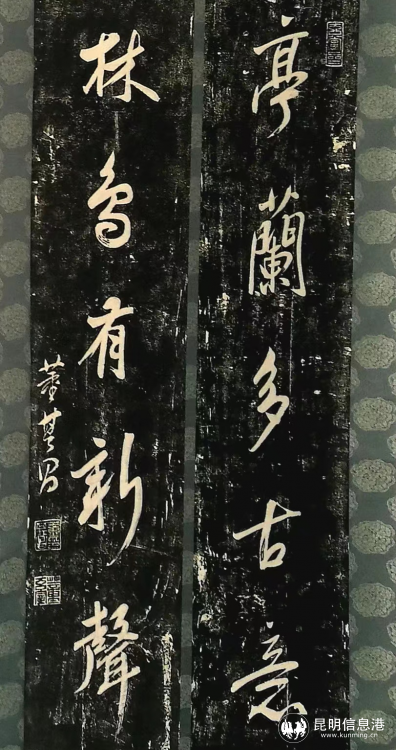 亭蘭多古意
林鳥有新聲
董其昌
昆明信息港
www.kunming.cn